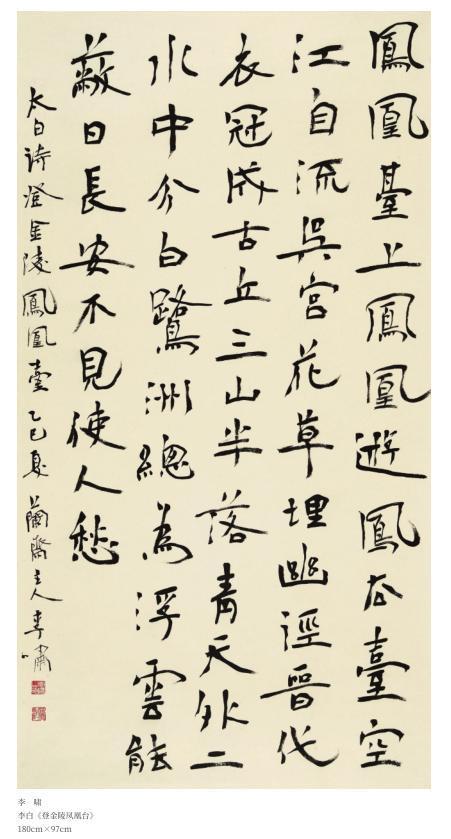 鳳凰臺上鳳凰遊鳳去臺空
江自流吳宮花草埋幽徑晉代
衣冠成古丘三山半落青天外二
水中分白鷺洲總為浮雲能
蔽日長安不見使人愁
太白诗登金陵鳳凰臺乙巳夏蘭齋主人李嘯
李 啸
李白《登金陵凤凰台》
180cm×97cm